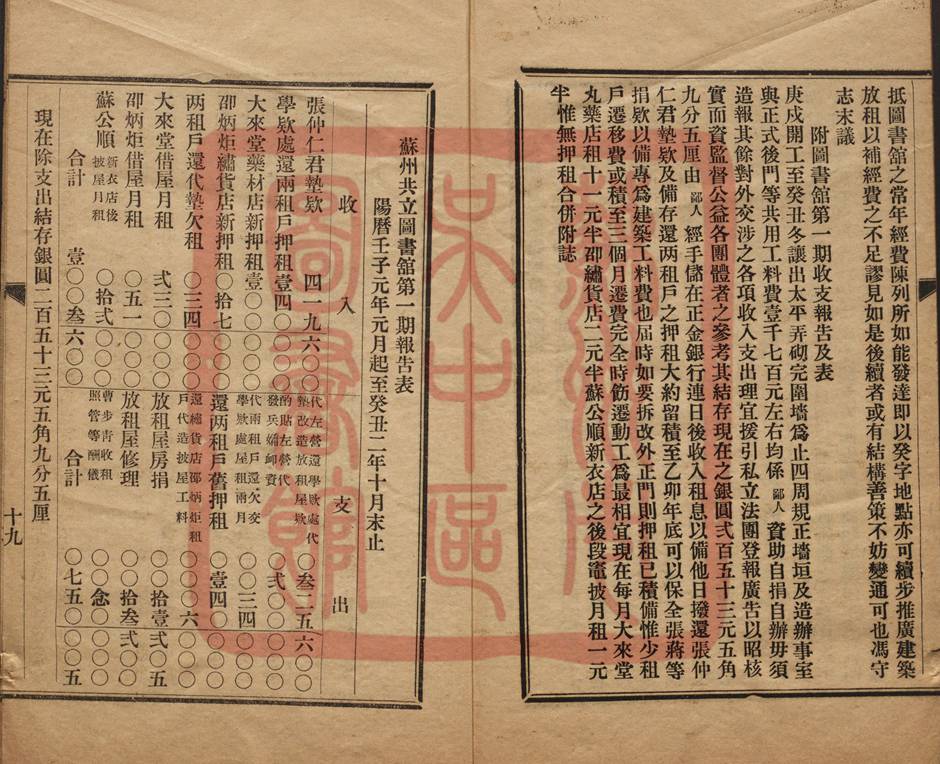 抵圖書舘之常年經費陳列所如能發達即以癸字地點亦可續步推廣建築
放租以補經費之不足謬見如是後續者或有結構善策不妨變通可也馮守
志末議
附圖書舘第一期收支報告及表
庚戌開工至癸丑冬讓出太平弄砌完圍墻爲止四周規正墻垣及造辦事室
與正式後門等共用工料費壹千七百元左右均係鄙人資助自捐自辦毋須
造報其餘對外交涉之各項收入支出理宜援引私立法團登報廣告以昭核
實而資監督公益各團體者之參考其結存現在之銀圓弍百五十三元五角
九分五厘由鄙人經手儲在正金銀行連日後收入租息以備他日撥還張仲
仁君墊欵及備存還两租戶之押租大約留積至乙卯年底可以保全張蔣等
捐欵以備專爲建築工料費也届時如要拆改外正門則押租已積備惟少租
戶遷移費或積至三個月遷費完全時飭遷動工爲最相宜現在每月大來堂
丸藥店租十一元半邵繡貨店二元半蘇公順新衣店之後段竈披月租一元
半惟無押租合併附誌
蘇州共立圖書舘第一期報告表
陽曆壬子元年元月起至癸丑二年十月末止
收入
支出
張仲仁君墊欵 四一九六〇〇
代左營還學欵處代墊改造放租屋欵 〇叁二五六〇〇
學欵處還兩租戶押租 壹四〇〇〇〇
酌貼左營代發兵婦卹資 〇〇弍〇〇〇〇
大來堂藥材店新押租 壹〇〇〇〇〇
代兩租戶還欠交學欵處屋租兩月 〇〇〇三四〇〇
邵炳炬繡貨店新押租 〇拾七〇〇〇
還两租戶舊押租 〇壹四〇〇〇〇
两租戶還代墊欠租 〇三四〇〇〇
還繡貨店邵炳炬租戶代造披屋工料 〇〇〇〇六〇〇
大來堂借屋月租 弍三〇〇〇〇
放租屋房捐 〇〇拾壹弍〇五
邵炳炬借屋月租 〇五一〇〇〇
放租屋修理 〇〇拾叁弍〇〇
蘇公順新衣店後披屋月租 〇拾弍〇〇〇
曹步青收租照管等酬儀 〇〇〇念〇〇〇
合計 壹〇〇叁六〇〇
合計 〇七五〇〇〇五
現在除支出結存銀圓二百五十三元五角九分五厘
十九